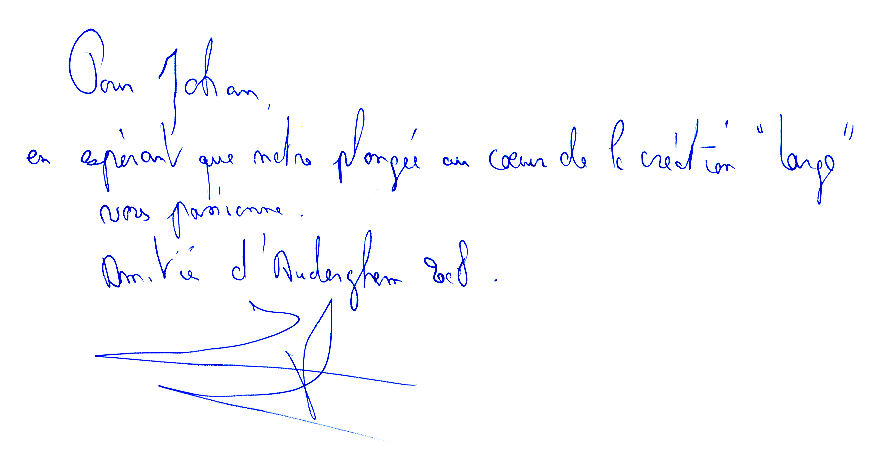 Pour Johan,
en espérant que notre plongée au coeur de la création "Largo"
vous passionne.
Amitié d'Auderghem